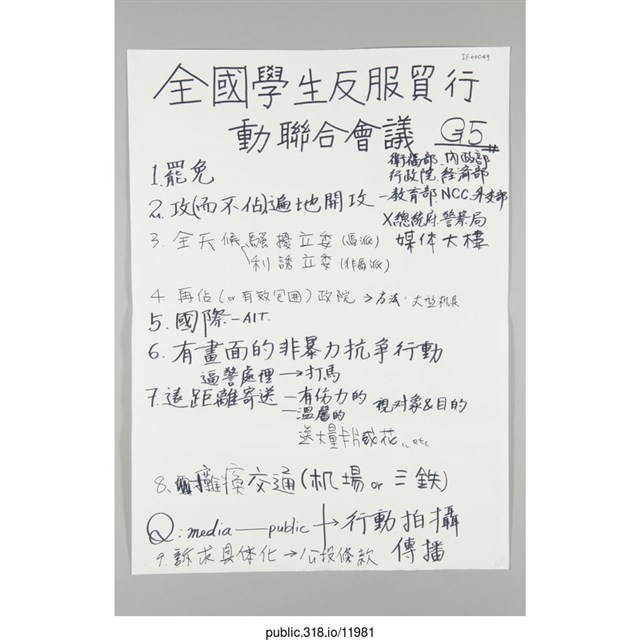 IF00049
全國學生反服貿行
動聯合會議 G5
衛福部、內政部
行政院、経済部
1.罷免
2.攻(而不佔)遍地開攻—教育部、NCC、
X總統府、警察局
媒体大樓
3.全天候騷擾立委(馬派)
利誘立委(非馬派)
4.再佔(or有效包围)政院→方法:大型机具
5.國際–AIT.
6.有畫面的非暴力抗爭行動
逼警處理→打馬
7.遠距離寄送—有估力的
—溫馨的 視对象&目的
送大量卡片或花,,etc
8.癱瘓交通(机場or三鉄)
Q:media—public→行動拍攝
傳播
9.訴求具体化→公投條款
public.318.io/11981